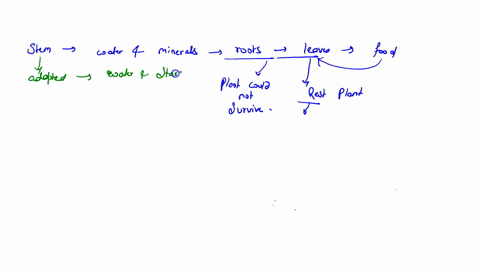 Stem → water & minerals → roots → leaves → food
adopted → water & Sta
Plant could not survive.
Rest Plant